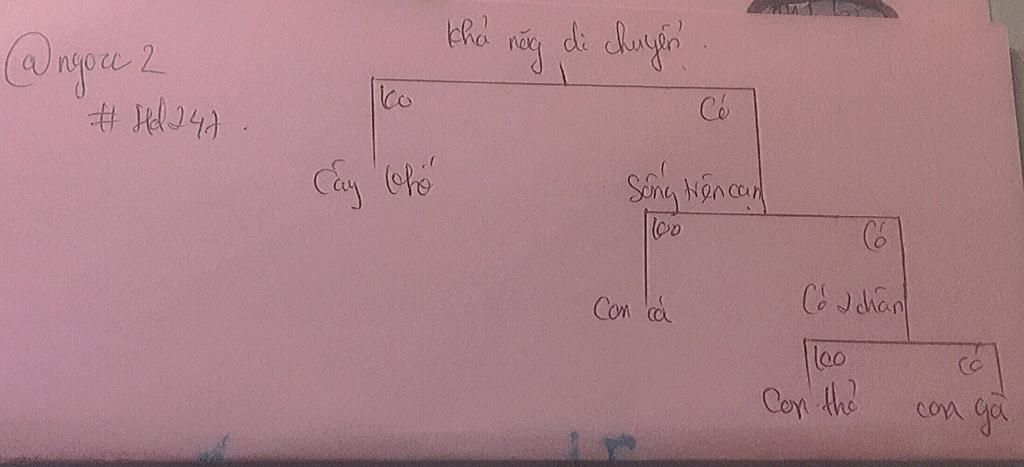 @ngocc2
# Hd247.
khả năg di chuyển.
ko
Có
Cây khố
Sống trên cạn
ko
Có
Con cá
Có 2 chân
ko
Có
Con thỏ
con gà